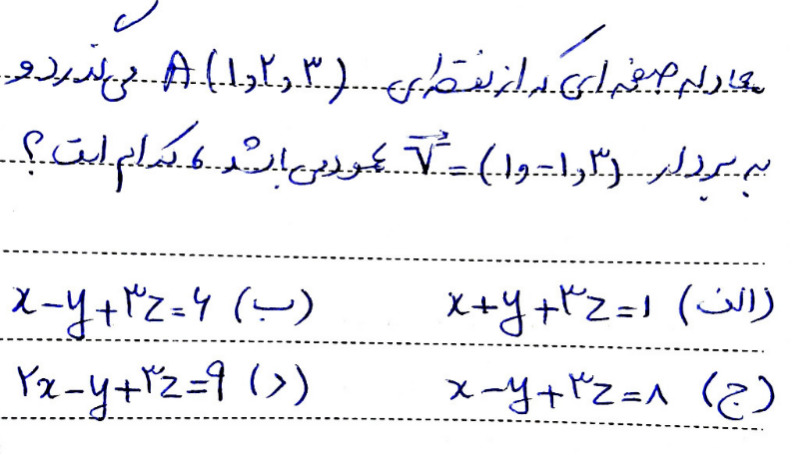 معادله صفحه‌ای که از نقطه‌ی A(۱,۲,۳) می‌گذرد و
به بردار V=(۱,-۱,۳) عمود می‌باشد، کدام است؟
الف) x+y+۳z=۱ ب) x-y+۳z=۶
ج) x-y+۳z=۸ د) ۲x-y+۳z=۹